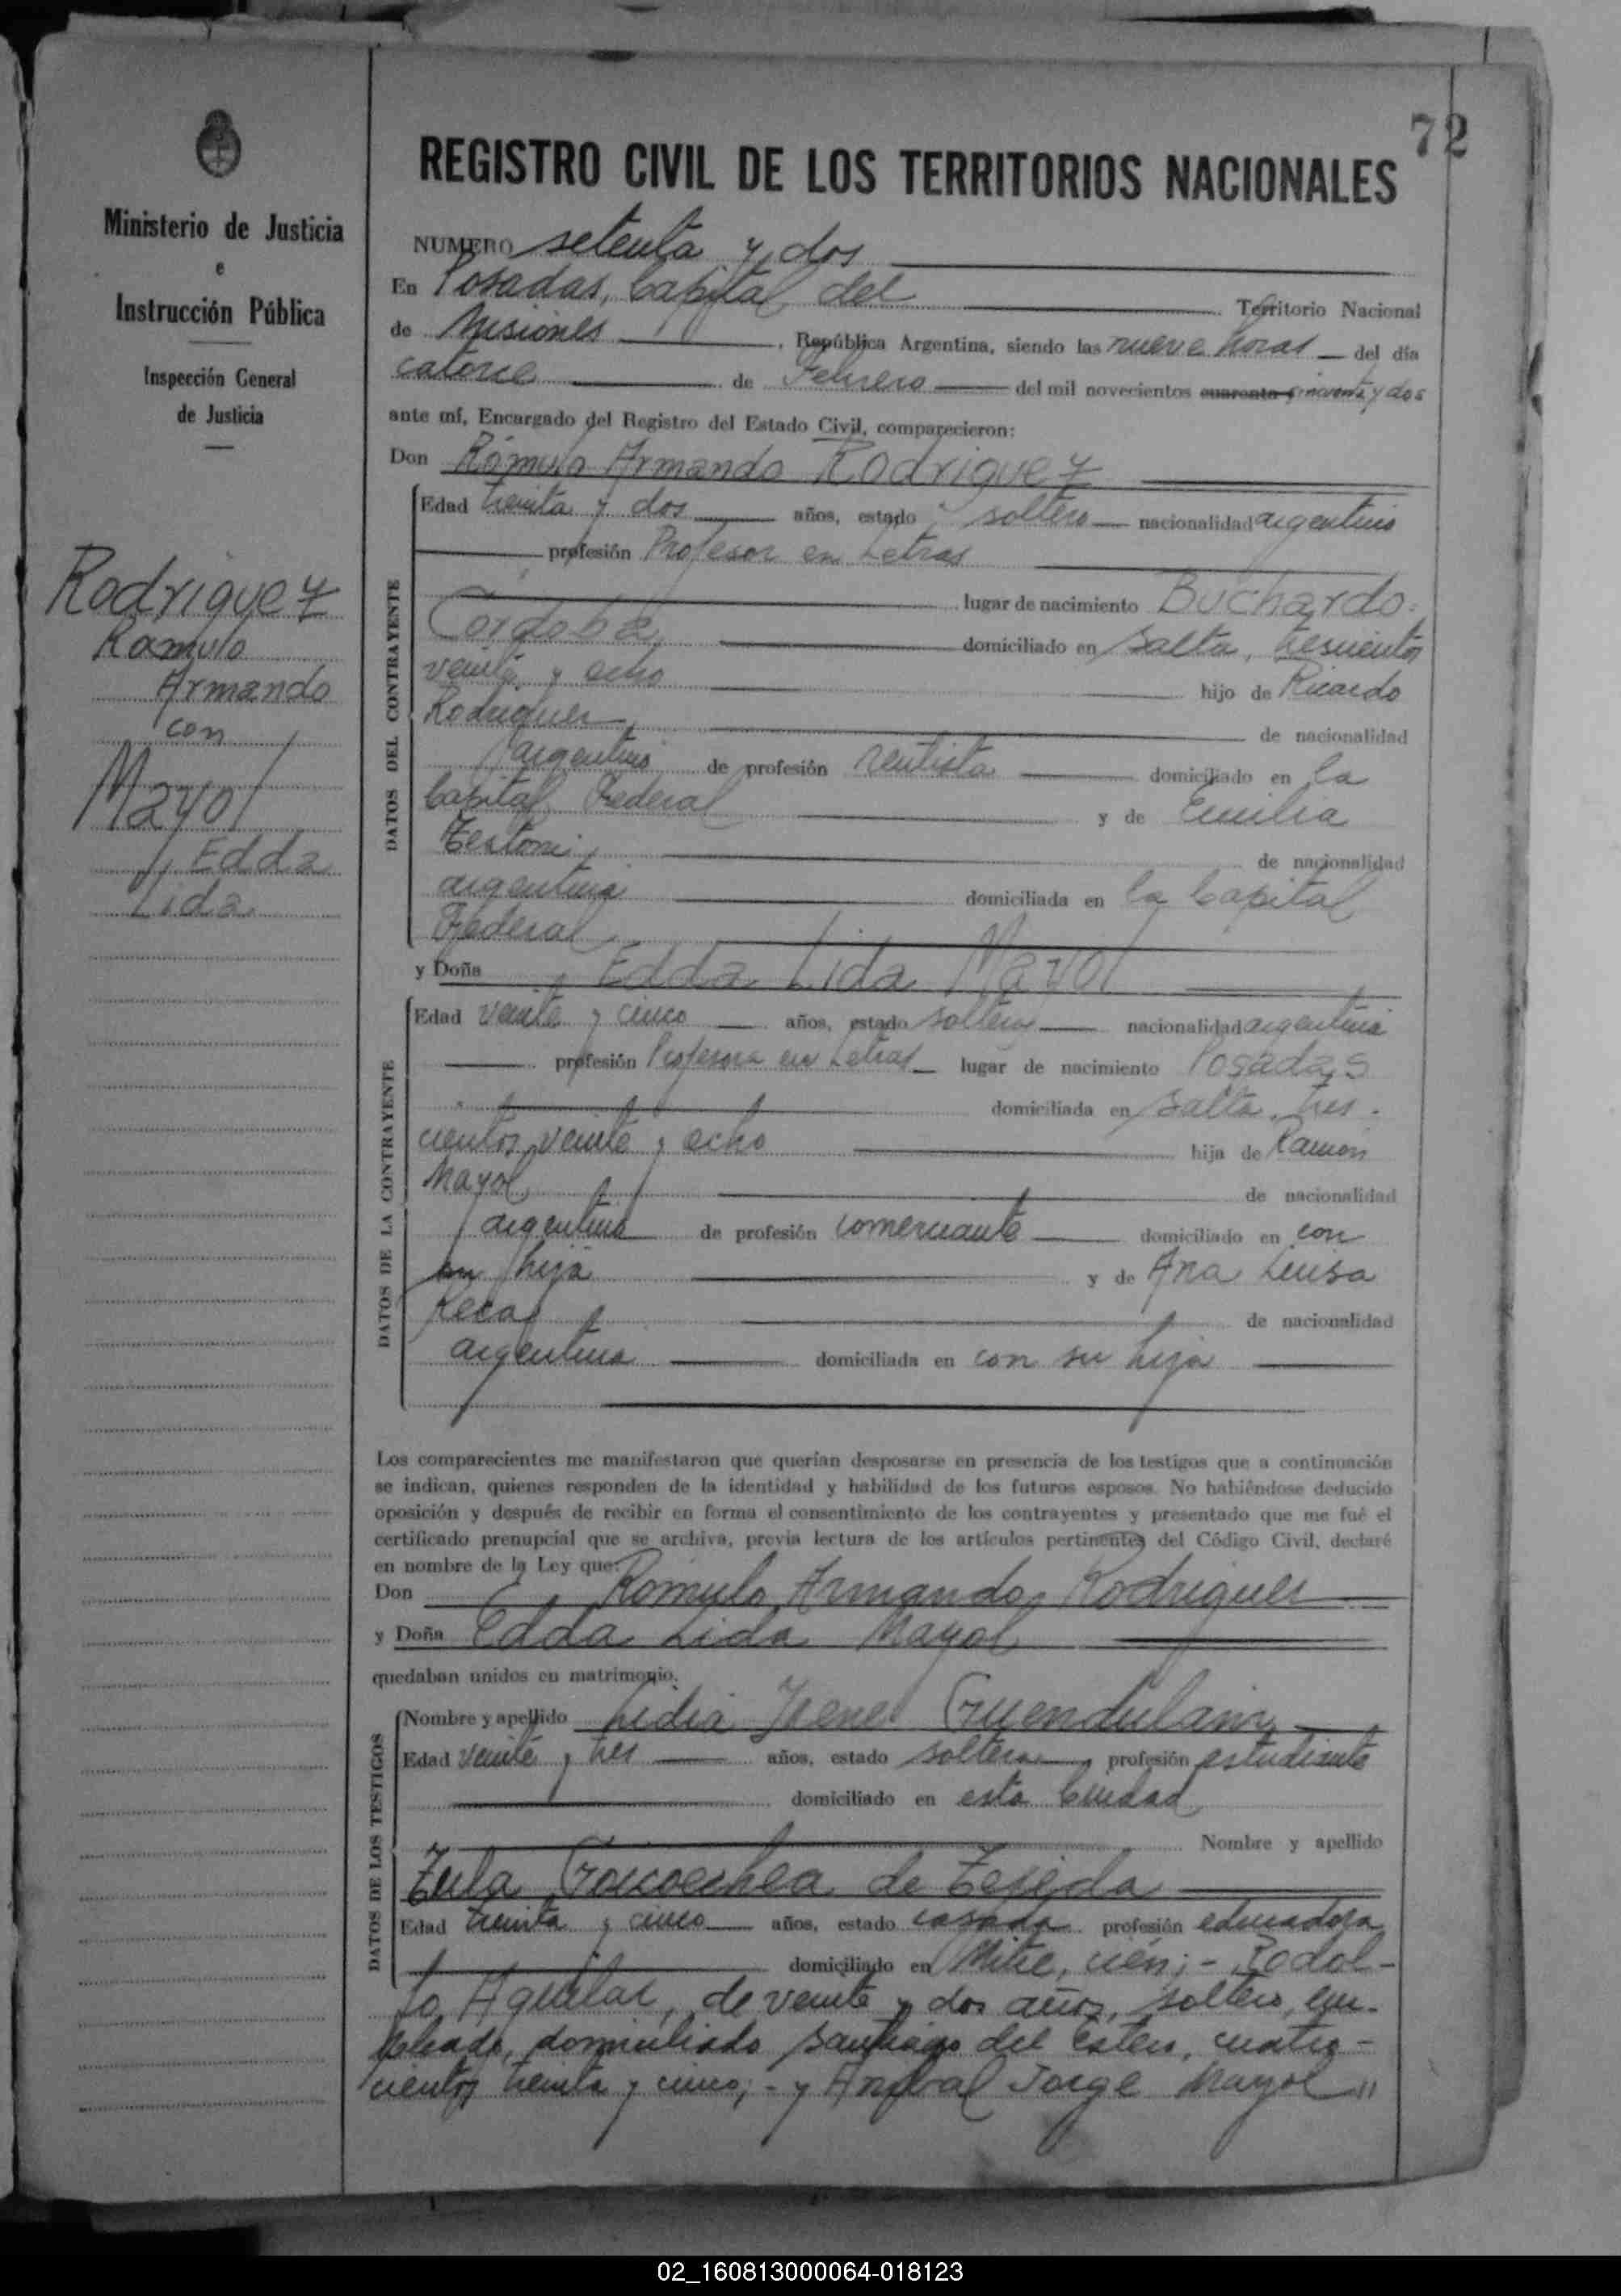 72
Ministerio de Justicia
e
Instrucción Pública
Inspección General
de Justicia
Rodriguez
Rómulo
Armando
con
Mayol
Edda
Lida
REGISTRO CIVIL DE LOS TERRITORIOS NACIONALES
NUMERO setenta y dos
En Posadas, Capital del Territorio Nacional
de Misiones, República Argentina, siendo las nueve horas del día
catorce de Febrero del mil novecientos cuarenta cincuenta y dos
ante mí, Encargado del Registro del Estado Civil, comparecieron:
Don Rómulo Armando Rodriguez
DATOS DEL CONTRAYENTE
Edad treinta y dos años, estado soltero nacionalidad argentino
profesión Profesor en Letras
lugar de nacimiento Buchardo-
Cordoba, domiciliado en Salta, trescientos
veinte y ocho hijo de Ricardo
Rodriguez, de nacionalidad
argentino de profesión rentista domiciliado en la
Capital Federal y de Emilia
Testoni, de nacionalidad
argentina domiciliada en la Capital
Federal
y Doña Edda Lida Mayol
DATOS DE LA CONTRAYENTE
Edad veinte y cinco años, estado soltera nacionalidad argentina
profesión Profesora en Letras lugar de nacimiento Posadas
domiciliada en Salta, tres-
cientos veinte y ocho hija de Ramón
Mayol, de nacionalidad
argentino de profesión comerciante domiciliado en con
su hija y de Ana Luisa
de nacionalidad
argentina domiciliada en con su hija
Los comparecientes me manifestaron que querían desposarse en presencia de los testigos que a continuación
se indican, quienes responden de la identidad y habilidad de los futuros esposos. No habiéndose deducido
oposición y después de recibir en forma el consentimiento de los contrayentes y presentado que me fué el
certificado prenupcial que se archiva, previa lectura de los artículos pertinentes del Código Civil, declaré
en nombre de la Ley que:
Don Rómulo Armando Rodriguez
y Doña Edda Lida Mayol
quedaban unidos en matrimonio.
DATOS DE LOS TESTIGOS
Nombre y apellido Lidia Irene
Edad veinte y tres años, estado soltera, profesión estudiante
domiciliado en esta Ciudad
Nombre y apellido
Tula Goicoechea de Tejeda
Edad treinta y cinco años, estado casada profesión educadora
domiciliado en Mitre, cien;- Rodol-
fo Aguilar, de veinte y dos años, soltero, em-
pleado, domiciliado Santiago del Estero, cuatro-
cientos treinta y cinco;- y Anibal Jorge Mayol "
02_160813000064-018123